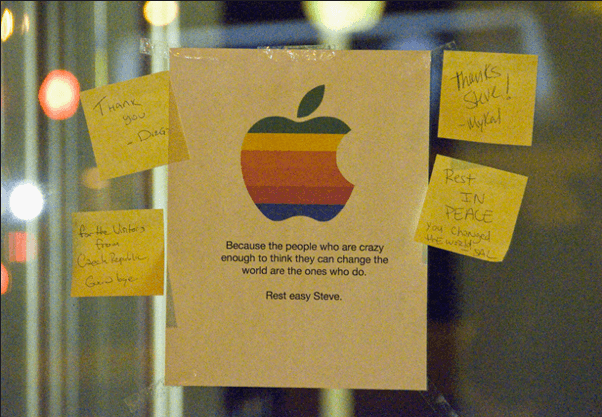 Thank
you
- Doug
For the Visitors
from
Czech Republic
Goodbye
Because the people who are crazy
enough to think they can change the
world are the ones who do.
Rest easy Steve.
Thanks
Steve!
Rest
IN
PEACE
you changed
the world